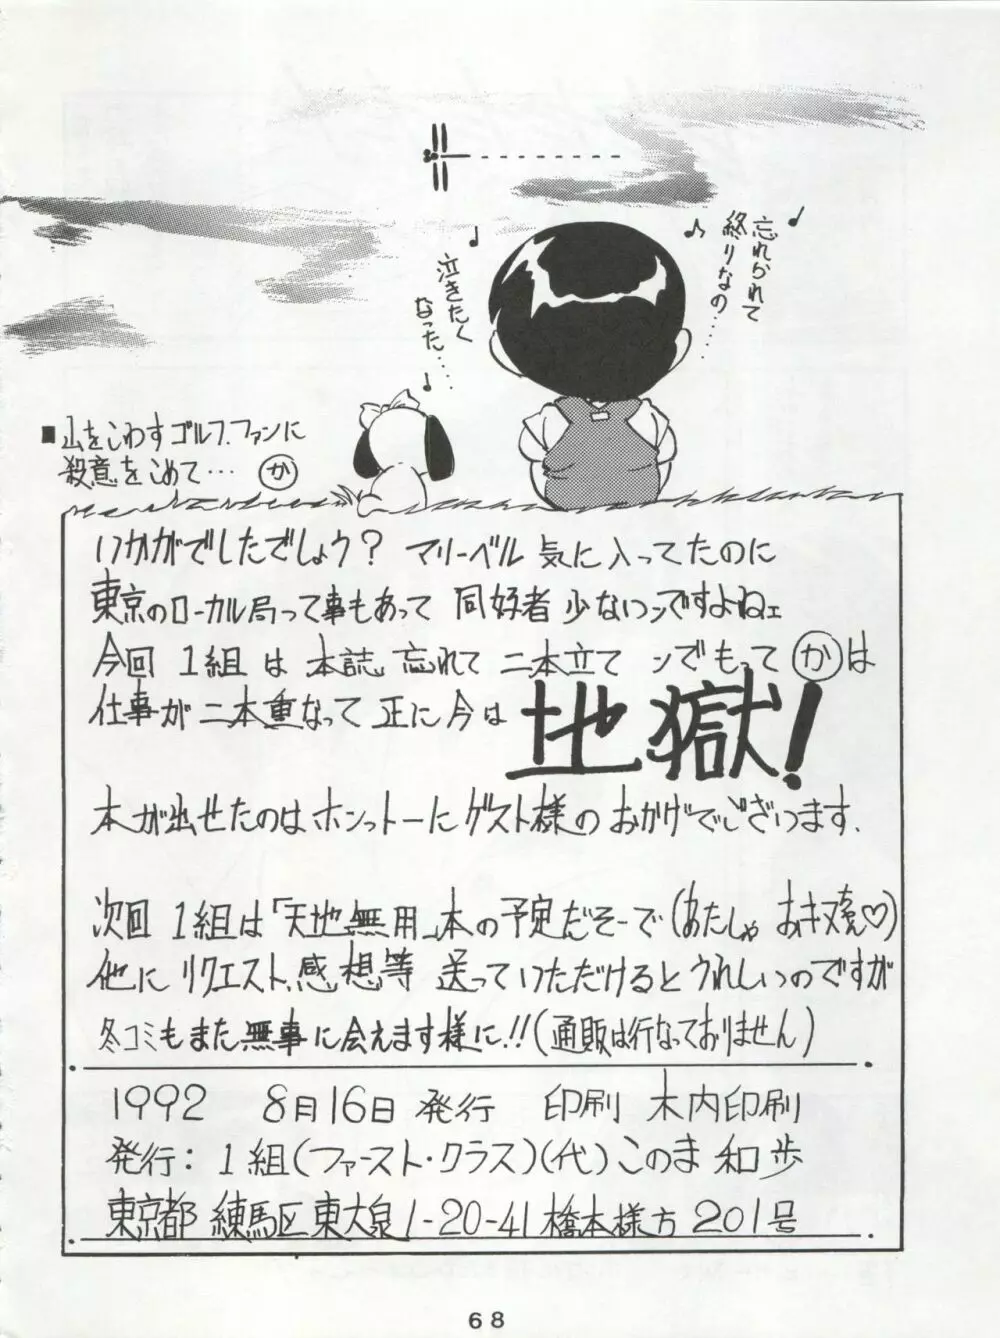 ♪ 忘れられて
終りなの……♪
♪ 泣きたく
なった…… ♪
■山をこわすゴルフファンに
殺意をこめて… か
いかがでしたでしょう? マリーベル 気に入ってたのに
東京のローカル局って事もあって 同好者 少ないンですよねェ
今回 1組 は 本誌 忘れて 二本立て ンでもって かは
仕事が二本重なって 正に今は 地獄!
本が出せたのはホンっトーにゲスト様のおかげでございます.
次回 1組は「天地無用」本の予定だそーで(あたしゃ おキヌ命♡)
他に リクエスト、感想等 送っていただけるとうれしいのですが
冬コミもまた無事に会えます様に!!(通販は行なっておりません)
1992 8月16日 発行 印刷 木内印刷
発行: 1組(ファースト・クラス)(代)このま 和歩
東京都 練馬区東大泉1-20-41橋本様方 201号
68